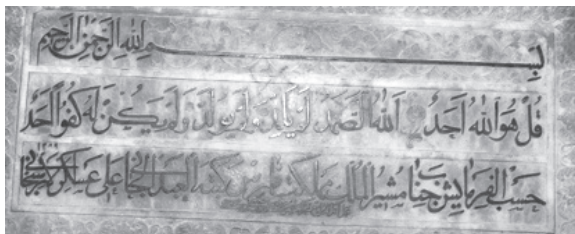 بسم الله الرحمن الرحيم
قل هو الله احد الله الصمد لم يلد ولم يولد ولم يكن له كفوا احد
حسب الفرمايش جناب مشير الملك كتبه العبد علی عسکر